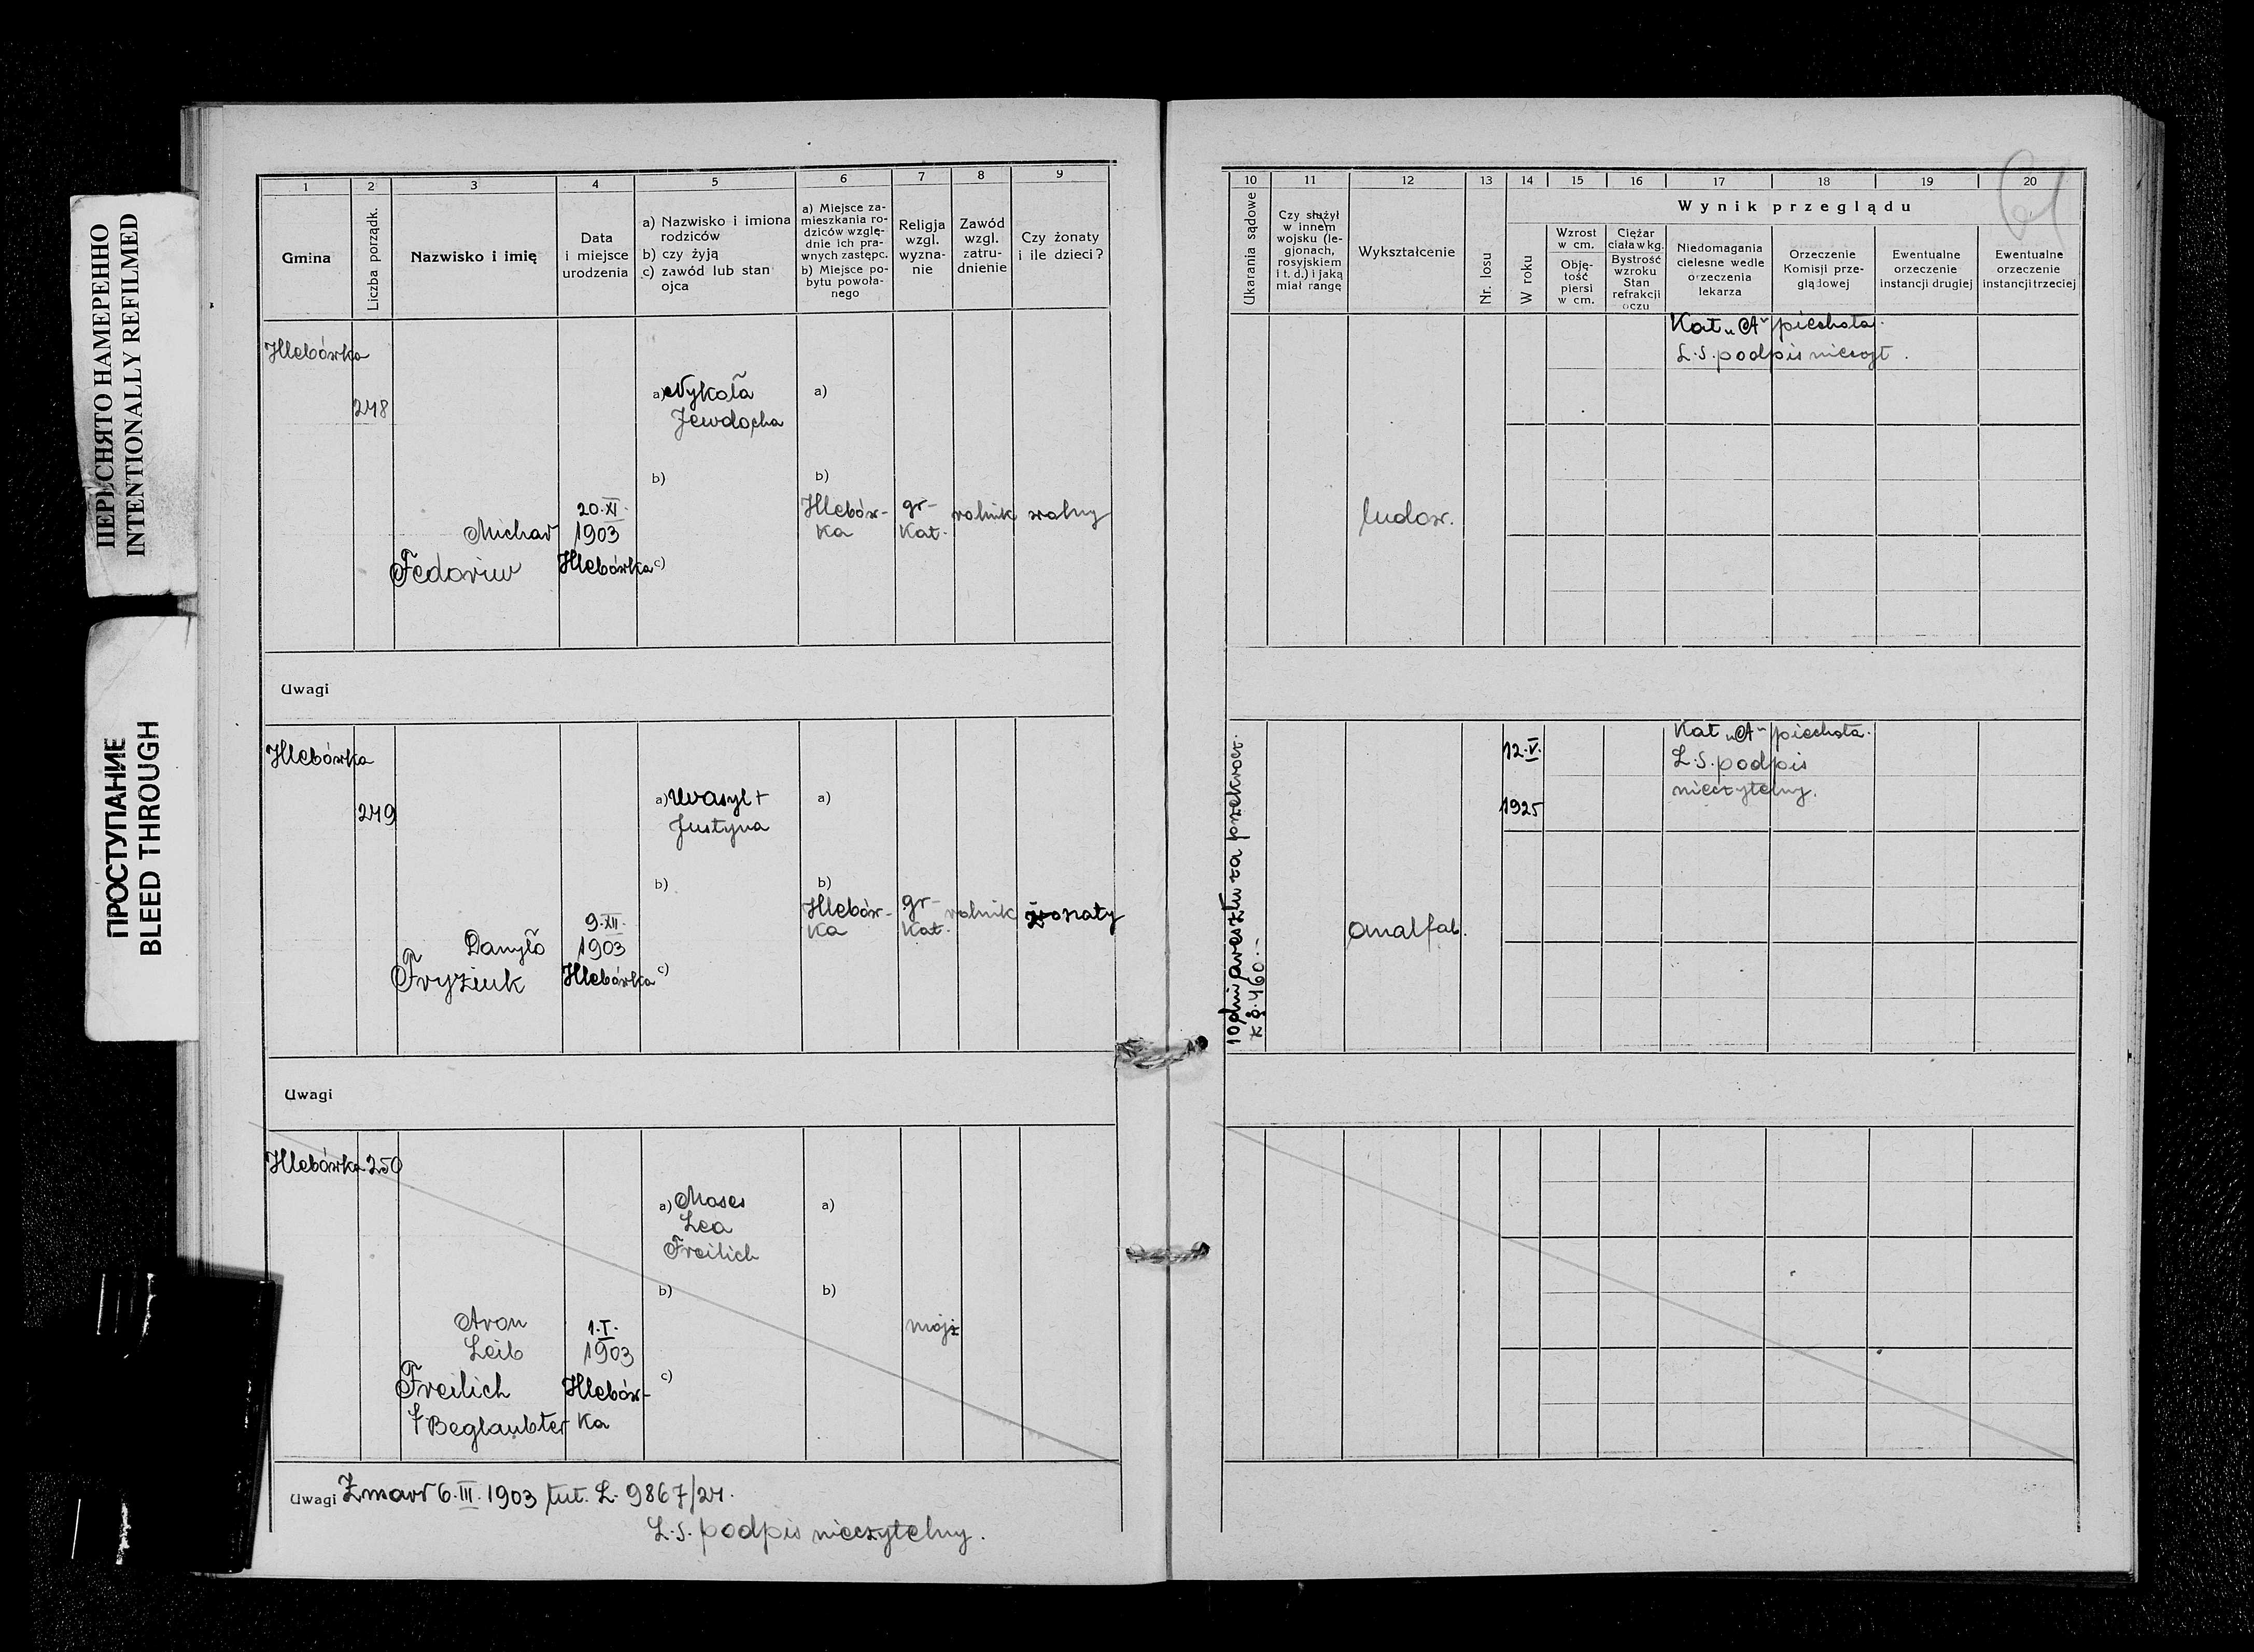 ПЕРЕСНЯТО НАМЕРЕННО
INTENTIONALLY REFILMED
ПРОСТУПАНИЕ
BLEED THROUGH
1 2 3 4 5 6 7 8 9
Gmina
Liczba porządk.
Nazwisko i imię
Data
i miejsce
urodzenia
a) Nazwisko i imiona
rodziców
b) czy żyją
c) zawód lub stan
ojca
a) Miejsce za-
mieszkania ro-
dziców wzglę-
dnie ich pra-
wnych zastępc.
b) Miejsce po-
bytu powoła-
nego
Religja
wzgl.
wyzna-
nie
Zawód
wzgl.
zatru-
dnienie
Czy żonaty
i ile dzieci?
Hlebówka
248
Michał
Fedoriw
20.XI.
1903
Hlebówka
a) Nykoła
Jewdocha
b)
c)
a)
b)
Hlebów-
ka
gr-
Kat.
rolnik
wolny
Uwagi
Hlebówka
249
Danyło
Fryziuk
9.XII.
1903
Hlebówka
a) Wasyl +
Justyna
b)
c)
a)
b)
Hlebów-
ka
gr-
Kat.
rolnik
żonaty
Uwagi
Hlebówka
250
Aron
Leib
Freilich
f Beglaubter
1.I.
1903
Hlebów-
ka
a) Moses
Lea
Freilich
b)
c)
a)
b)
mojż
Uwagi Zmarł 6.III.1903 tut. L. 9867/24.
L.S. podpis nieczytelny.
61
10 11 12 13 14 15 16 17 18 19 20
Ukarania sądowe
Czy służył
w innem
wojsku (le-
gjonach,
rosyjskiem
i t. d.) i jaką
miał rangę
Wykształcenie
Nr. losu
Wynik przeglądu
W roku
Wzrost
w cm.
Obję-
tość
piersi
w cm.
Ciężar
ciała w kg.
Bystrość
wzroku
Stan
refrakcji
oczu
Niedomagania
cielesne wedle
orzeczenia
lekarza
Orzeczenie
Komisji prze-
glądowej
Ewentualne
orzeczenie
instancji drugiej
Ewentualne
orzeczenie
instancji trzeciej
ludow.
Kat „A" piechota.
L.S. podpis nieczyt.
10 dni aresztu za przekrocz.
z § 460.-
analfab.
12.V.
1925
Kat „A" piechota.
L.S. podpis
nieczytelny.